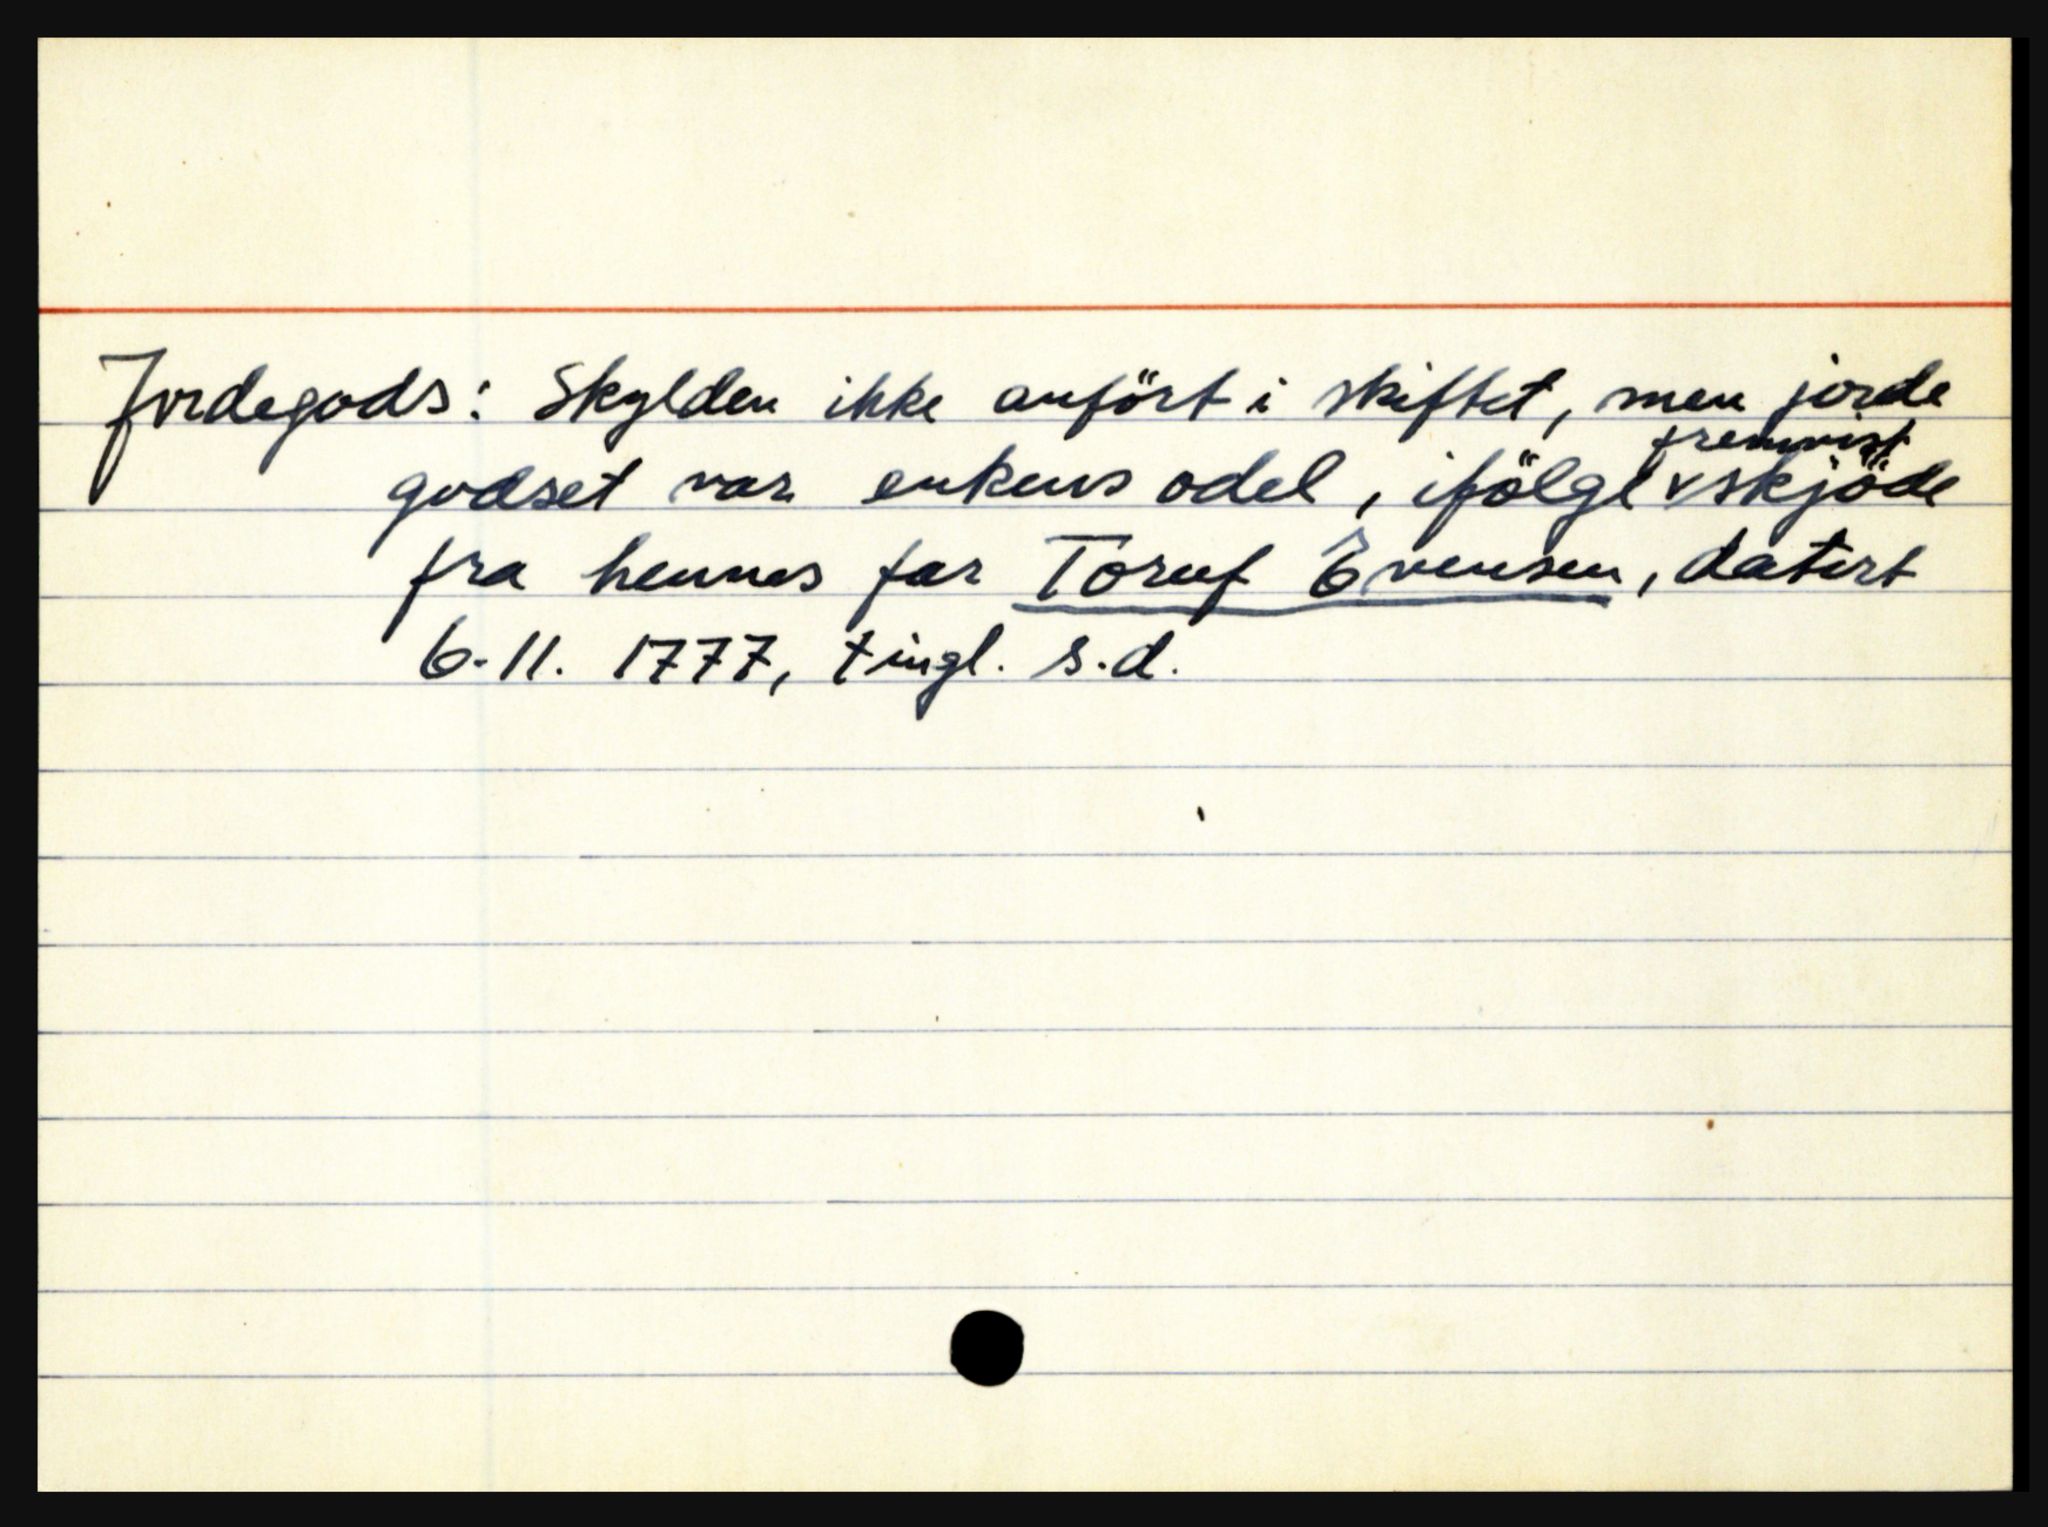 Jordegods: Skylden ikke anfört i skiftet, men jorde
godset var enkens odel, ifölge ᵛ fremvist skjöde
fra hennes far Toruf Evensen, datert
6.11. 1777, tingl. s.d.